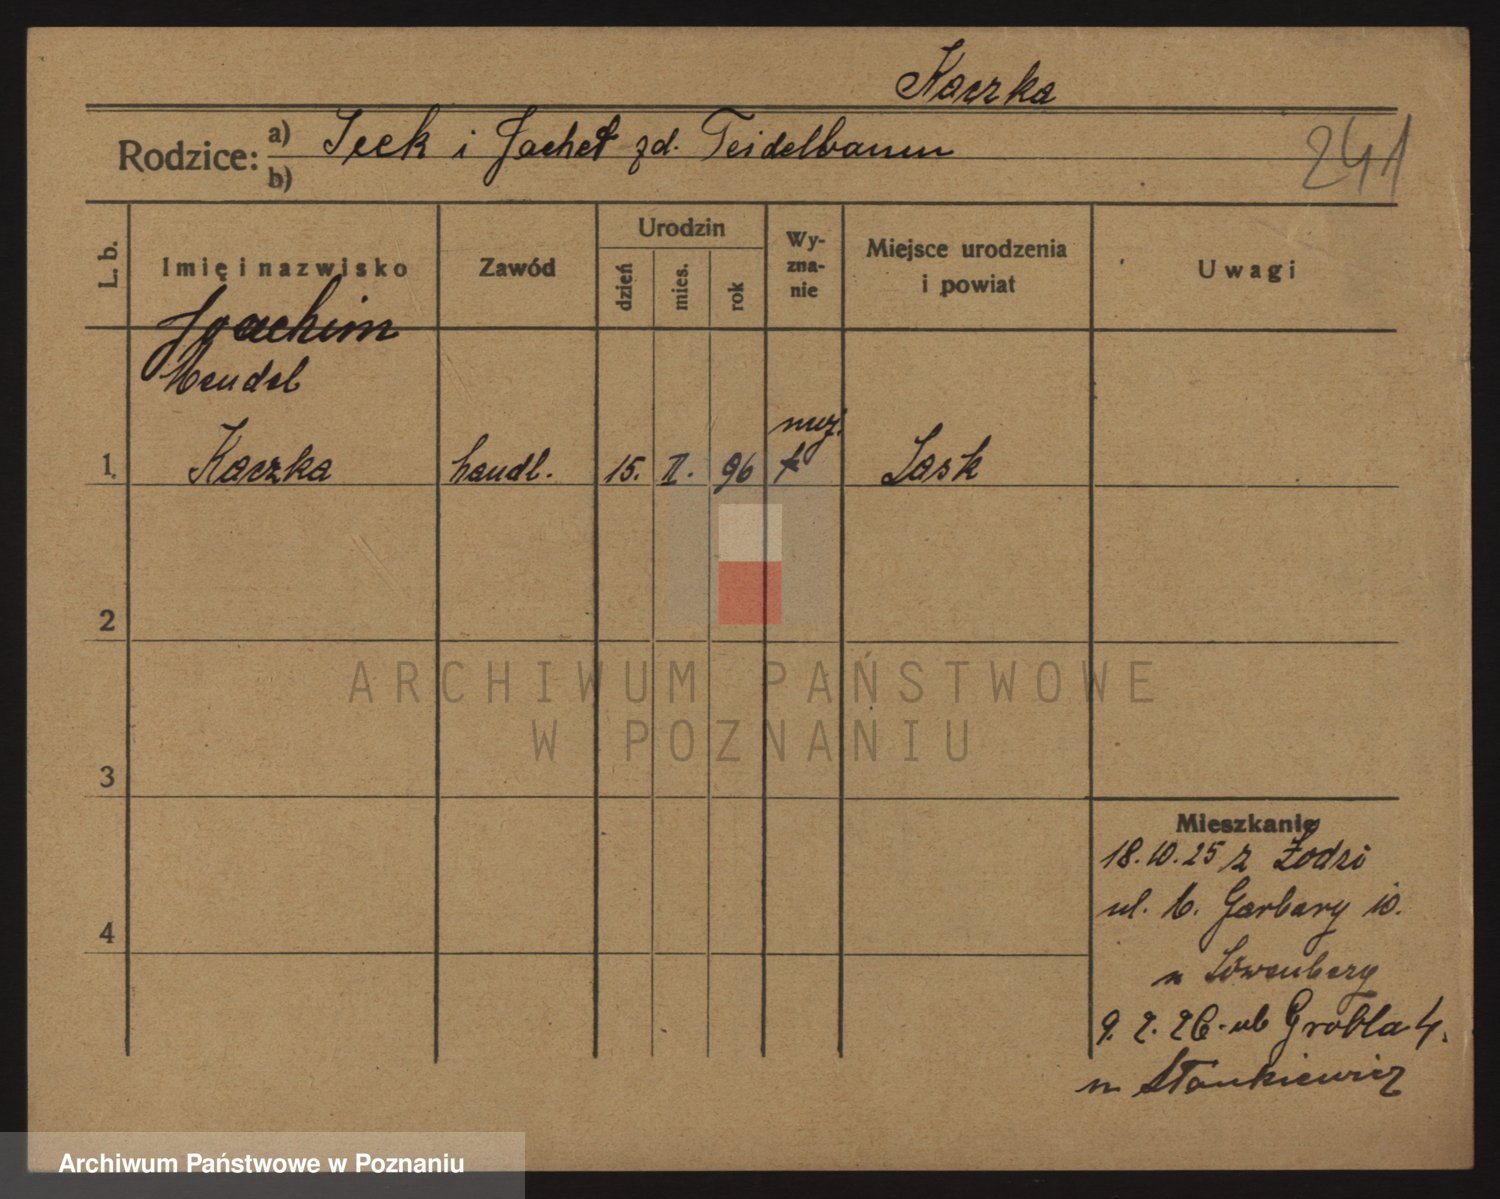 Kaczka
Rodzice: a) Icek i Jachet zd. Teidelbaum
b)
241
L. b.
Imię i nazwisko
Zawód
Urodzin
dzień
mies.
rok
Wy-
zna-
nie
Miejsce urodzenia
i powiat
Uwagi
Joachim
Mendel
1. Kaczka handl. 15. II. 96 mojż. Łask
2
3
4
Mieszkanie
18.10.25 z Łodzi
ul. W. Garbary 10.
u Löwenberg
9. 2. 26. ul Grobla 4.
u Stankiewicz
ARCHIWUM PAŃSTWOWE
W POZNANIU
Archiwum Państwowe w Poznaniu